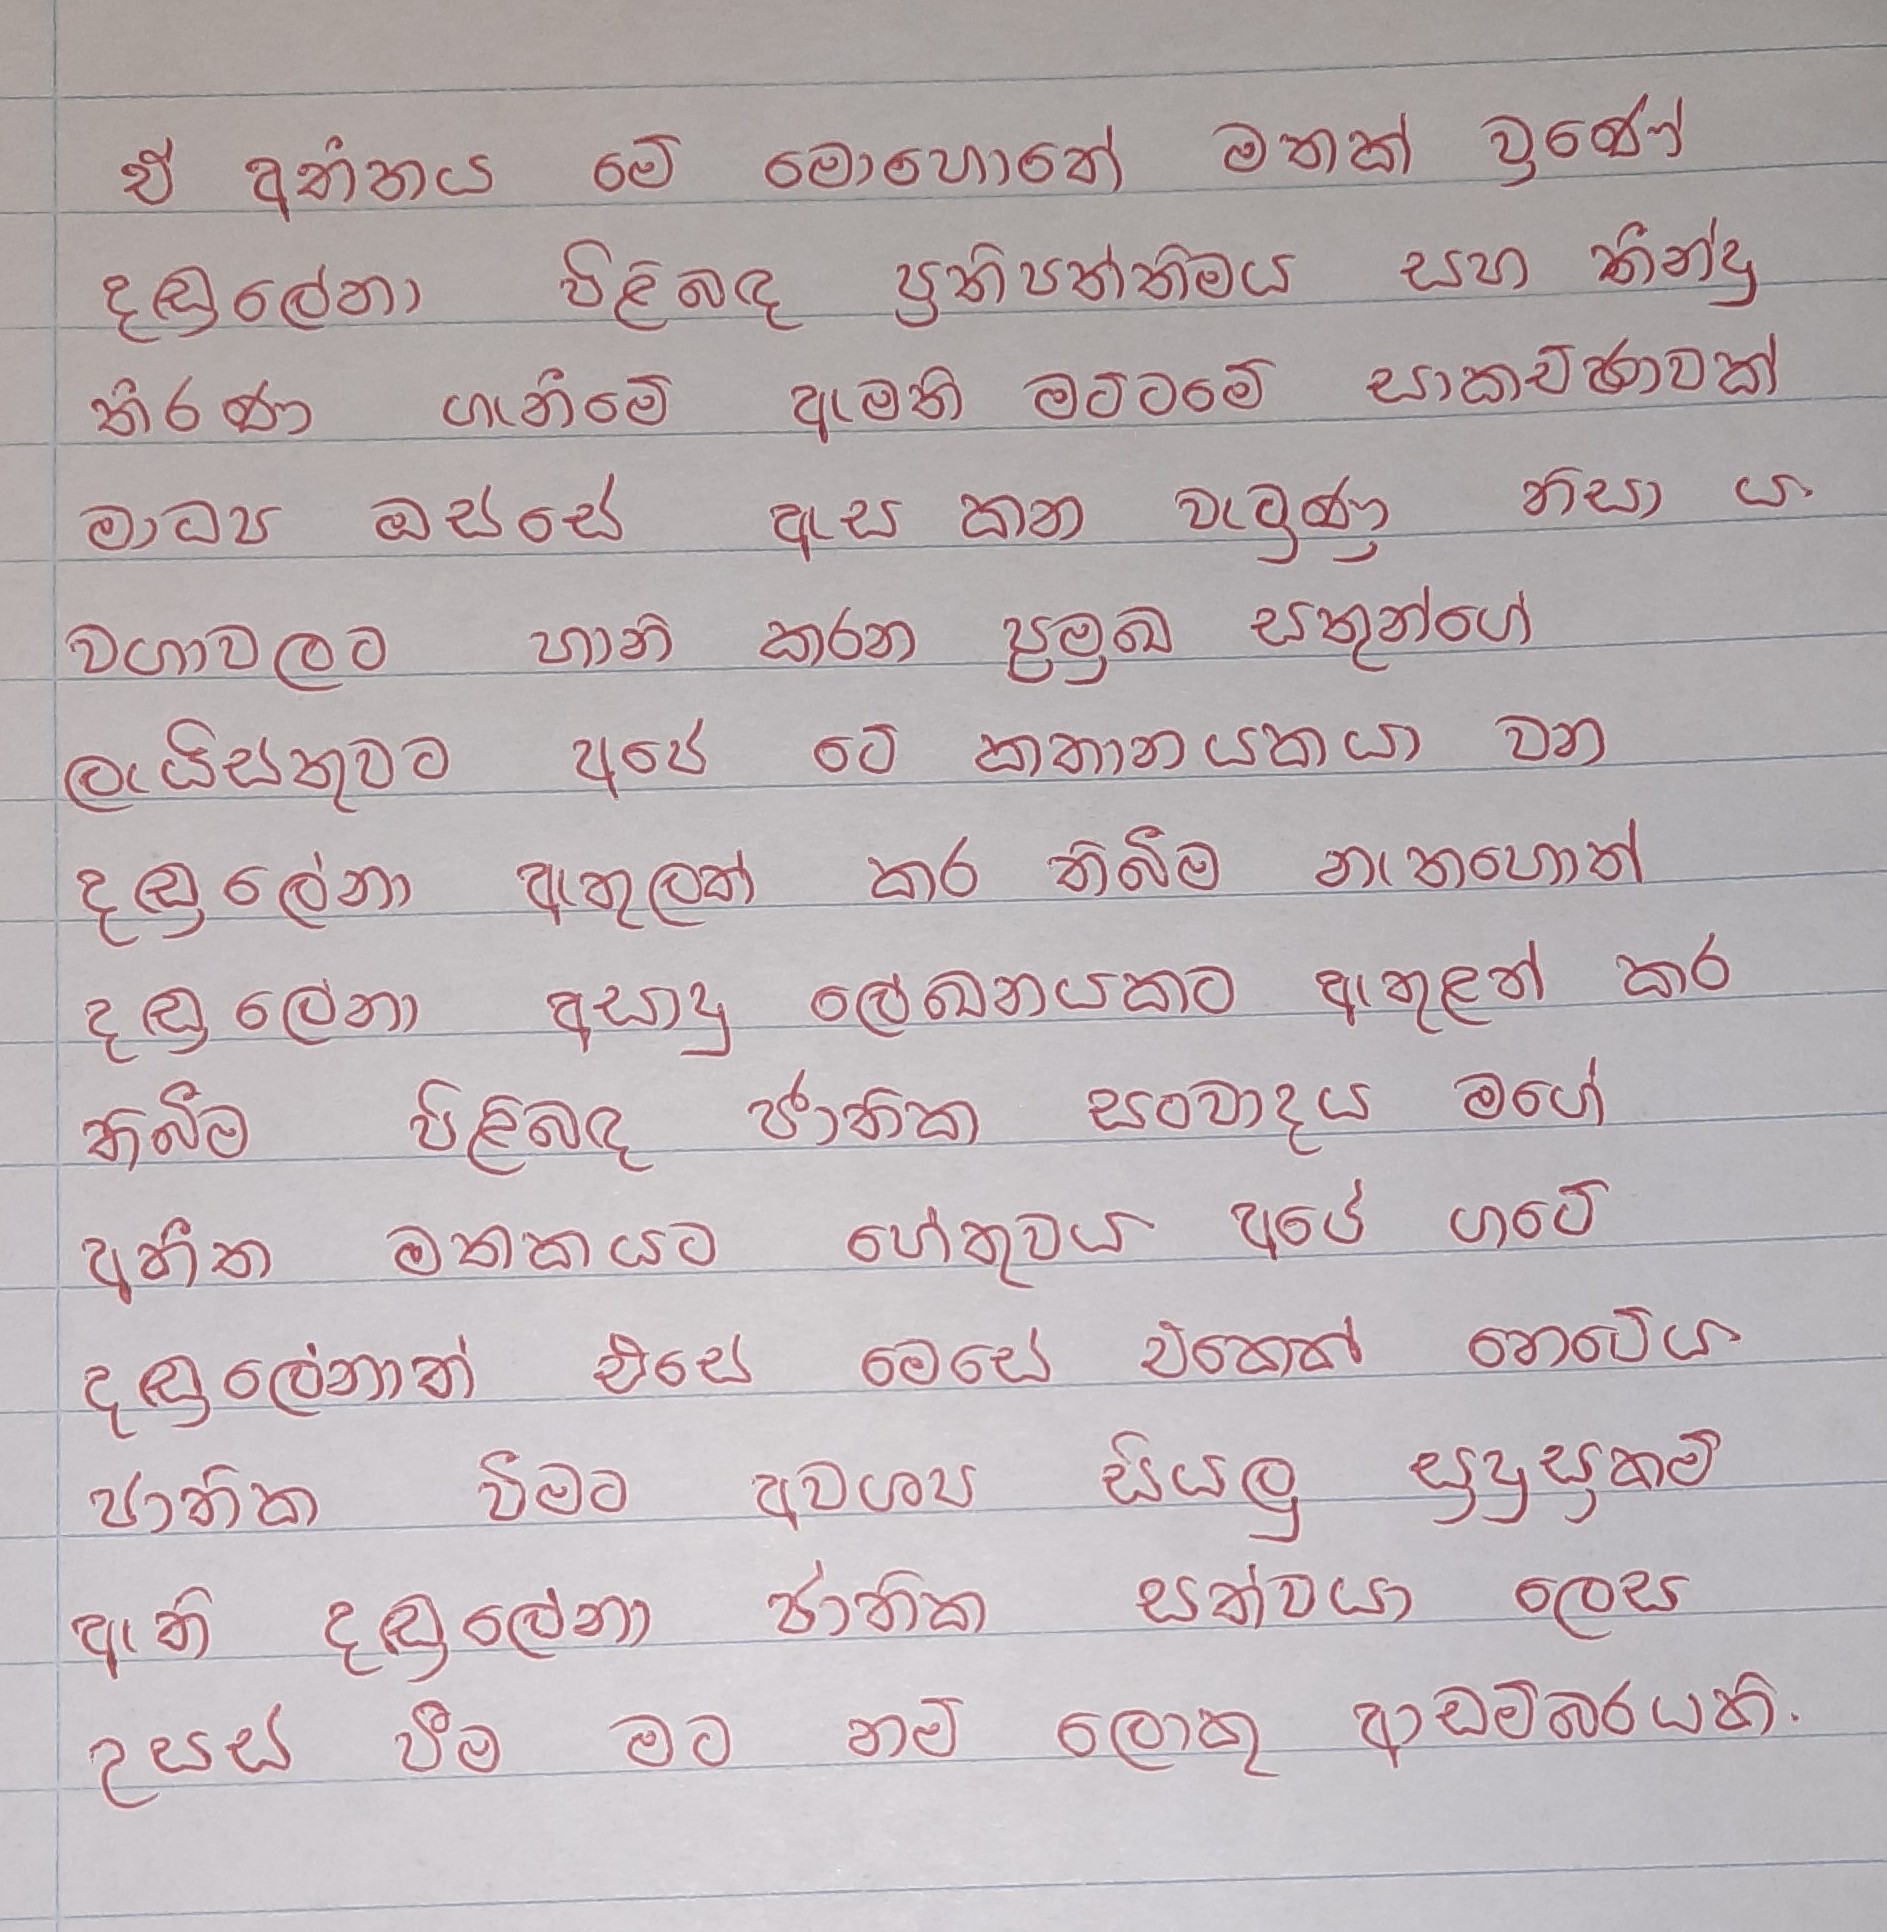 ඒ අතීතය මේ මොහොතේ මතක් වුණේ
දඬුලේනා පිළිබඳ ප්‍රතිපත්තිමය සහ තීන්දු
තීරණ ගැනීමේ ඇමති මට්ටමේ සාකච්ඡාවක්
මාධ්‍ය ඔස්සේ ඇස කන වැටුණු නිසා ය
වගාවලට හානි කරන ප්‍රමුඛ සතුන්ගේ
ලැයිස්තුවට අපේ මේ කතානායකයා වන
දඬුලේනා ඇතුලත් කර තිබීම නැතහොත්
දඬුලේනා අසාදු ලේඛනයකට ඇතුළත් කර
තිබීම පිළිබඳ ජාතික සංවාදය මගේ
අතීත මතකයට හේතුවය අපේ ගමේ
දඬුලේනාත් එසේ මෙසේ එකෙක් නොවේය
ජාතික වීමට අවශ්‍ය සියලු සුදුසුකම්
ඇති දඬුලේනා ජාතික සත්වයා ලෙස
උසස් වීම මට නම් ලොකු ආඩම්බරයකි.